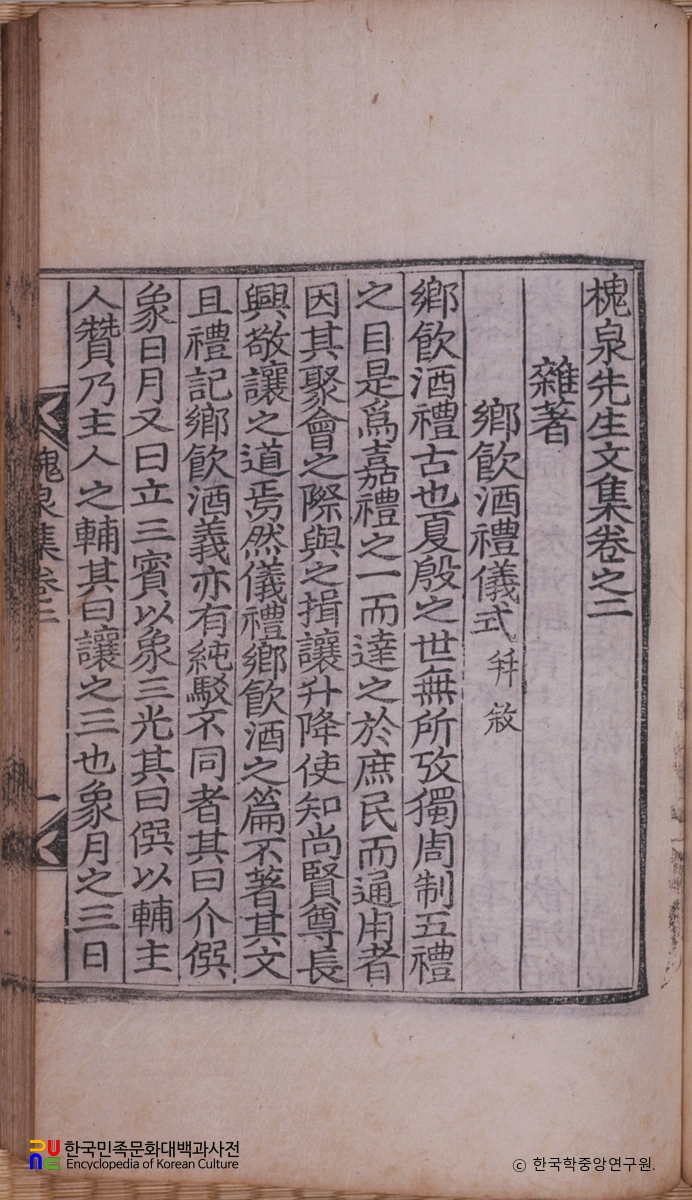 槐泉先生文集卷之二
雜著
鄕飮酒禮儀式 幷敘
鄕飮酒禮古也夏殷之世無所攷獨周制五禮
之目是爲嘉禮之一而達之於庶民而通用者
因其聚會之際與之揖讓升降使知尚賢尊長
興敬讓之道焉然儀禮鄕飮酒之篇不著其文
且禮記鄕飮酒義亦有純駁不同者其曰介僎
象日月又曰立三賓以象三光其曰僎以輔主
人贊乃主人之輔其曰讓之三也象月之三日
槐泉集卷二
一
한국민족문화대백과사전
Encyclopedia of Korean Culture
ⓒ 한국학중앙연구원.